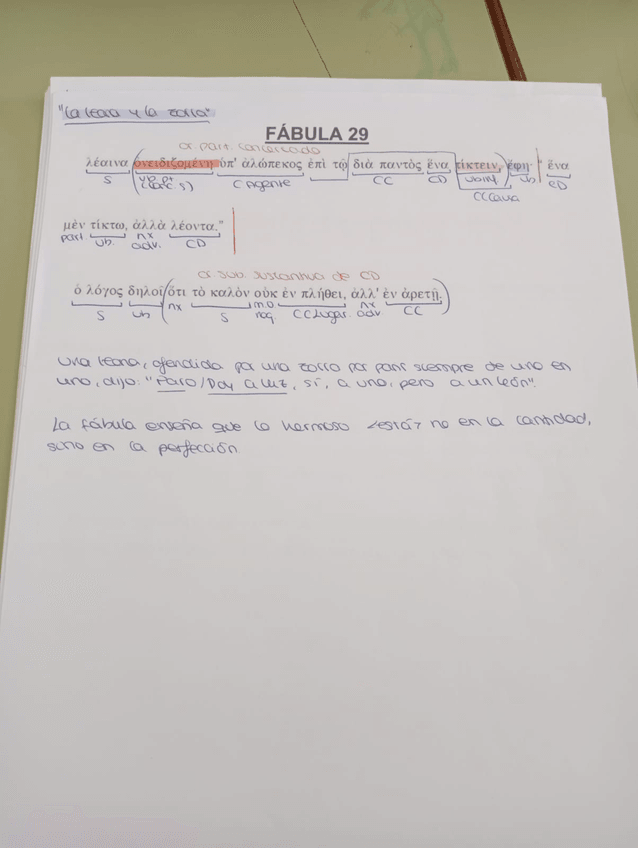 "La leona y la zorra"
FÁBULA 29
or part. concertado
λέαινα ὀνειδιζομένη ὑπ' ἀλώπεκος ἐπὶ τῷ διὰ παντὸς ἕνα τίκτειν, ἔφη· " ἕνα
S vb pt (conc S) C Agente CC CD vb inf vb CD
CC Causa
μὲν τίκτω, ἀλλὰ λέοντα."
part. vb. nx adv. CD
or sub. sustantiva de CD
ὁ λόγος δηλοῖ ὅτι τὸ καλὸν οὐκ ἐν πλήθει, ἀλλ' ἐν ἀρετῇ.
S vb nx S neg. CC Lugar nx adv CC
Una leona, ofendida por una zorra por parir siempre de uno en
uno, dijo: "Paro/Doy a luz, sí, a uno, pero a un león".
La fábula enseña que lo hermoso <está> no en la cantidad,
sino en la perfección